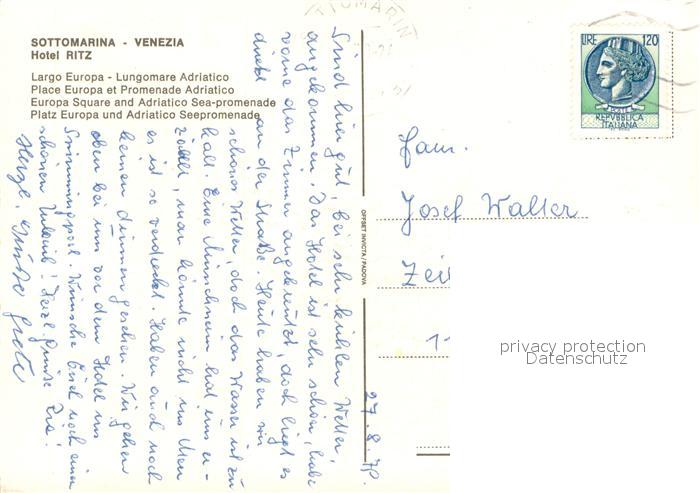 SOTTOMARINA - VENEZIA
Hotel RITZ
Largo Europa - Lungomare Adriatico
Place Europa et Promenade Adriatico
Europa Square and Adriatico Sea-promenade
Platz Europa und Adriatico Seepromenade
Sind hier gut, bei sehr kühlem Wetter,
angekommen. Das Hotel ist sehr schön, habe
vorne das Zimmer angekreuzt, doch liegt es
direkt an der Straße. Heute haben wir
schönes Wetter, doch das Wasser ist zu
kalt. Eine Münchnerin hat uns er-
zählt, man könnte nicht ins Meer
es ist so verdreckt. Haben auch noch
keinen drinnen gesehen. Wir gehen
oben bei uns vor dem Hotel ins
Swimmingpool. Wünsche Euch noch einen
schönen Urlaub! Herzl. Grüsse
Herzl. Grüße Grete
27.8.
OFFSET INVICTA / PADOVA
LIRE 120
POSTE
REPVBBLICA
ITALIANA
Fam.
Josef Walter
privacy protection
Datenschutz